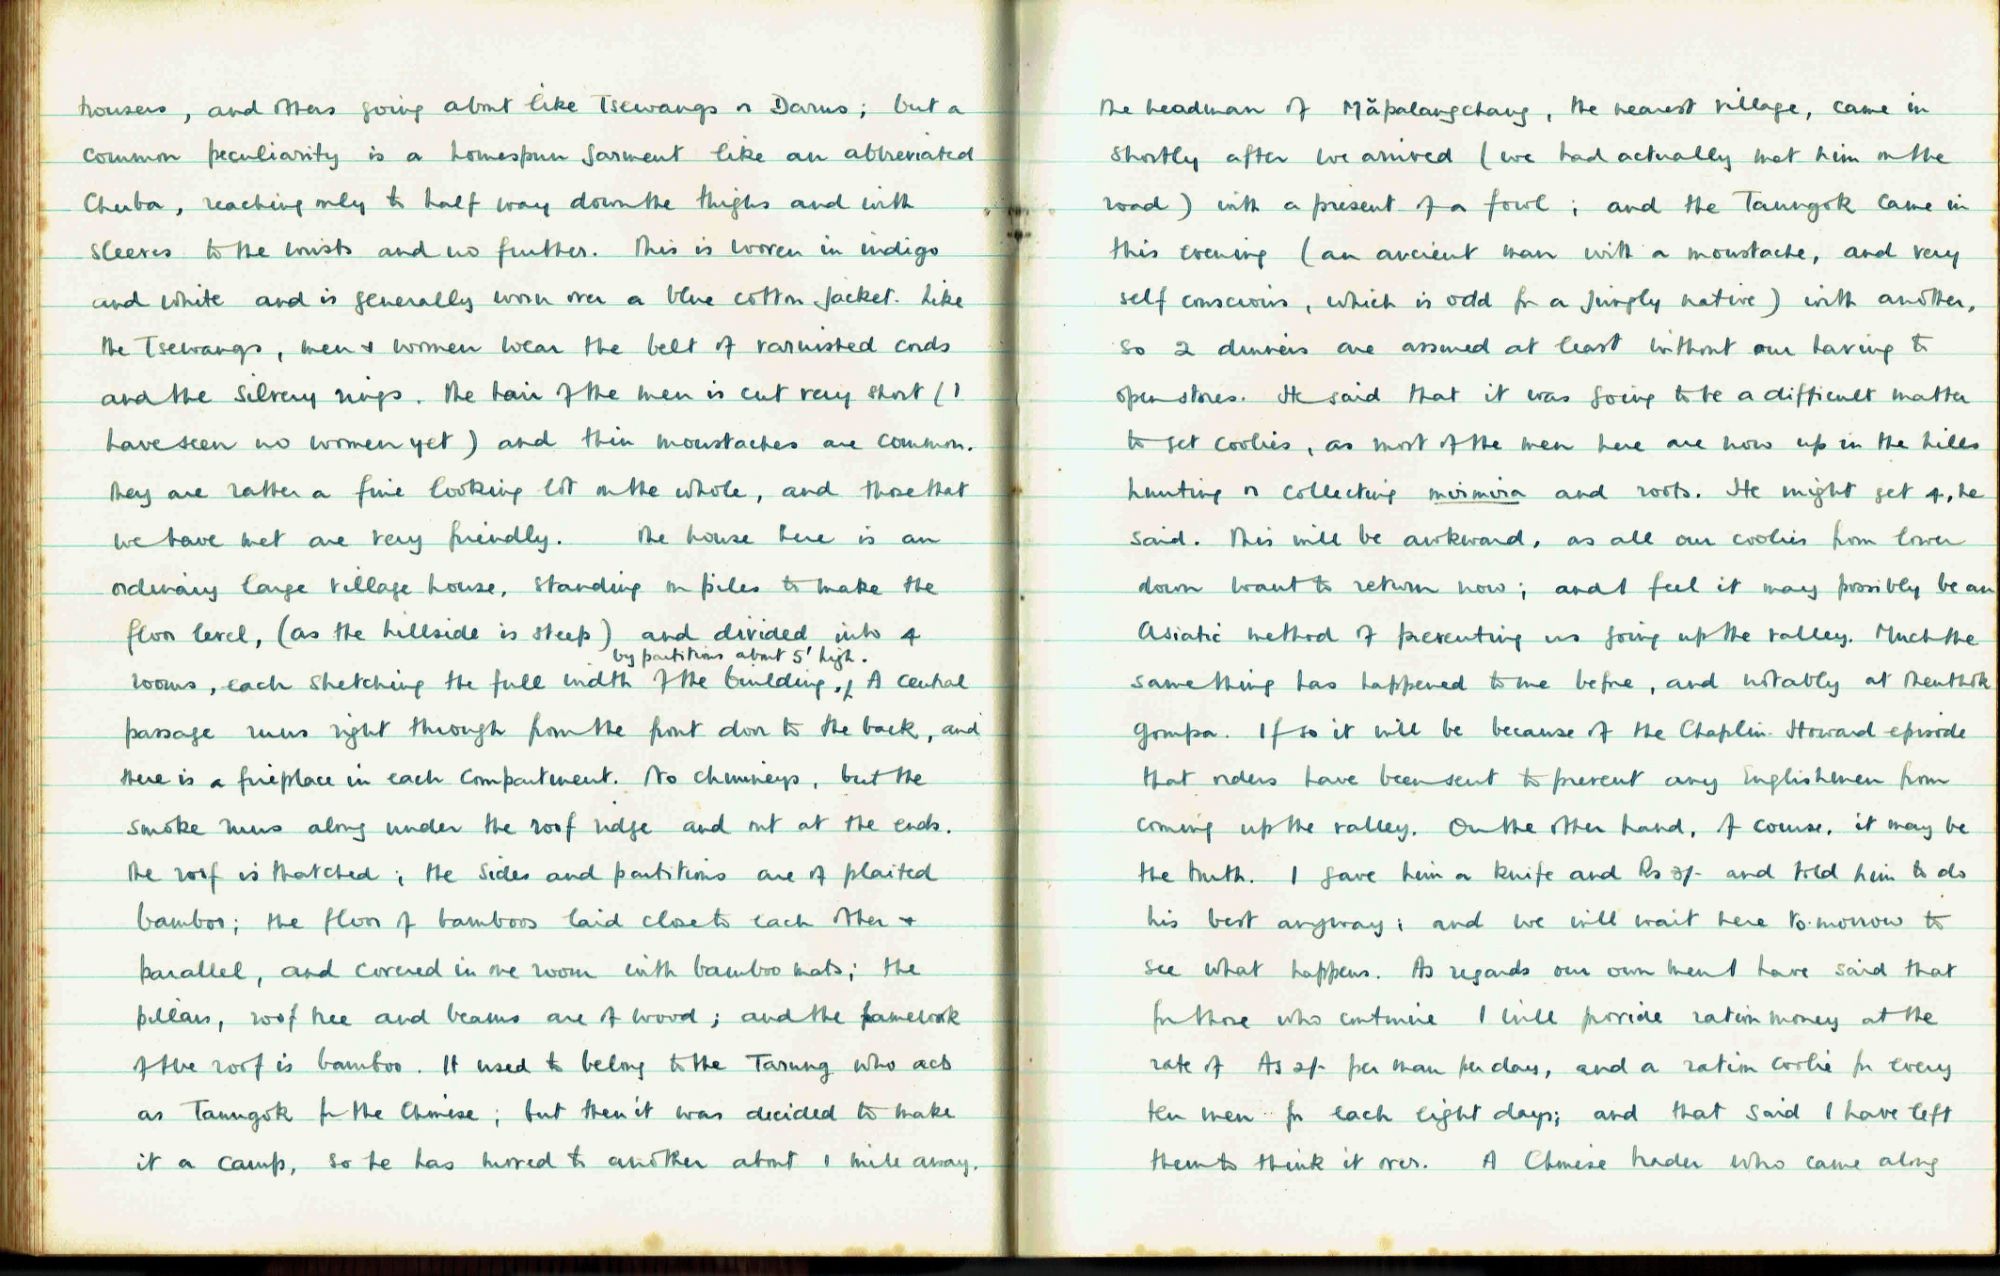 trousers, and others going about like Tsewangs or Darus; but a
common peculiarity is a homespun garment like an abbreviated
Chuba, reaching only to half way down the thighs and with
sleeves to the wrists and no further. This is woven in indigo
and white and is generally worn over a blue cotton jacket. Like
the Tsewangs, men & women wear the belt of varnished cords
and the silvery rings. The hair of the men is cut very short (I
have seen no women yet) and thin moustaches are common.
They are rather a fine looking lot on the whole, and those that
we have met are very friendly. The house here is an
ordinary large village house, standing on piles to make the
floor level, (as the hillside is steep) and divided into 4
by partitions about 5' high.
rooms, each stretching the full width of the building. A central
passage runs right through from the front door to the back, and
there is a fireplace in each compartment. No chimneys, but the
smoke runs along under the roof ridge and out at the ends.
The roof is thatched; the sides and partitions are of plaited
bamboo; the floor of bamboos laid close to each other &
parallel, and covered in one room with bamboo mats; the
pillars, roof tree and beams are of wood; and the framework
of the roof is bamboo. It used to belong to the Tarung who acts
as Taungok for the Chinese; but then it was decided to make
it a camp, so he has moved to another about 1 mile away.
The headman of Măpalangchang, the nearest village, came in
shortly after we arrived (we had actually met him on the
road) with a present of a fowl; and the Taungok came in
this evening (an ancient man with a moustache, and very
self conscious, which is odd for a jungly native) with another,
so 2 dinners are assured at least without our having to
open stores. He said that it was going to be a difficult matter
to get coolies, as most of the men here are now up in the hills
hunting or collecting mirmira and roots. He might get 4, he
said. This will be awkward, as all our coolies from lower
down want to return now; and I feel it may possibly be an
Asiatic method of preventing us going up the valley. Much the
same thing has happened to me before, and notably at Menthok
Gompa. If so it will be because of the Chaplin-Howard episode
that orders have been sent to prevent any Englishmen from
coming up the valley. On the other hand, of course, it may be
the truth. I gave him a knife and Rs 3/- and told him to do
his best anyway; and we will wait here to-morrow to
see what happens. As regards our own men I have said that
for those who continue I will provide ration money at the
rate of As 2/- per man per day, and a ration coolie for every
ten men for each eight days; and that said I have left
them to think it over. A Chinese trader who came along